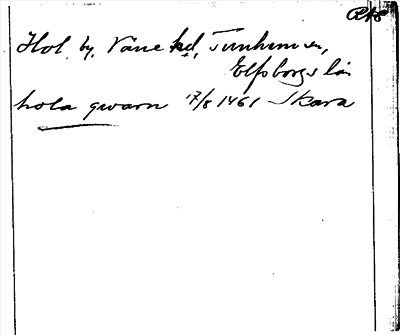 Hol, by, Väne hd,
Elfsborgs län
hola qwarn 17/8 1461 Skara